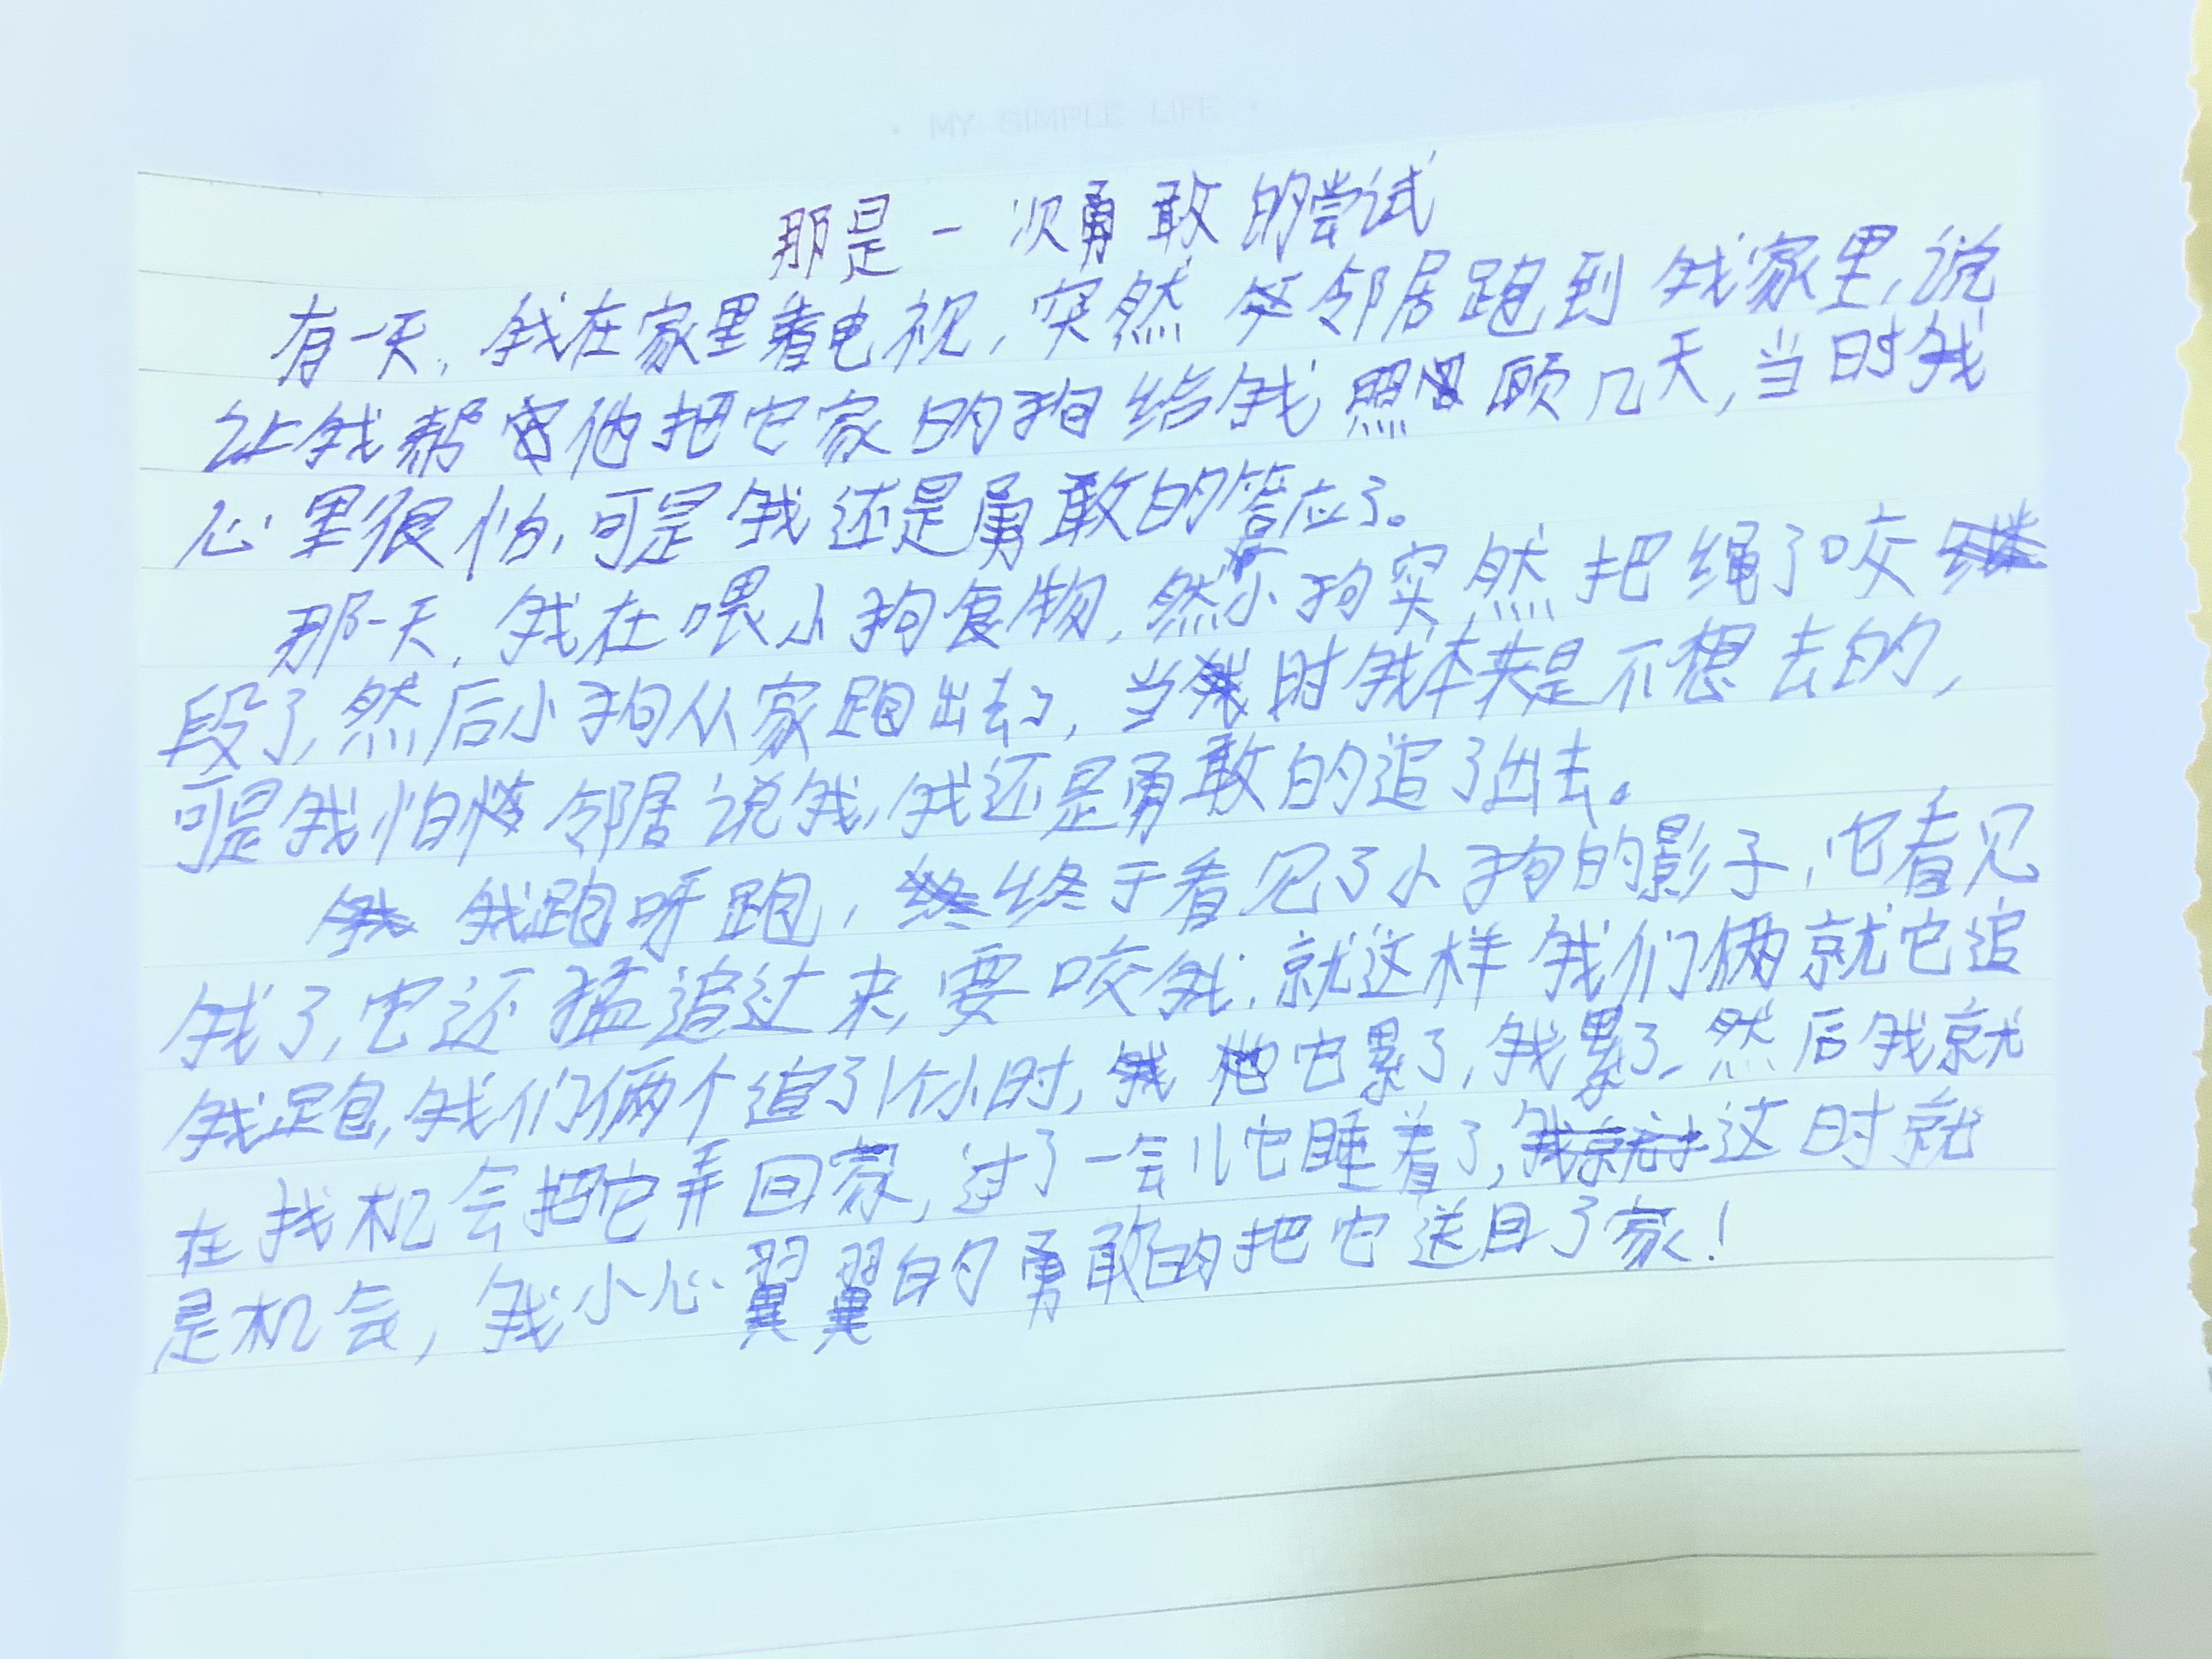 • MY SIMPLE LIFE •
那是一次勇敢的尝试
有一天,我在家里看电视,突然邻居跑到我家里,说
让我帮他把它家的狗给我照顾几天,当时我
心里很怕,可是我还是勇敢的答应了。
那一天,我在喂小狗食物,然小狗突然把绳了咬
段了,然后小狗从家跑出去了,当时我本来是不想去的,
可是我怕邻居说我,我还是勇敢的追了出去。
我跑呀跑,终于看见了小狗的影子,它看见
我了,它还猛追过来,要咬我,就这样我们俩就它追
我跑,我们俩个追了1个小时,它累了,我累了,然后我就
在找机会把它弄回家,过了一会儿它睡着了,这时就
是机会,我小心翼翼的勇敢的把它送回了家!